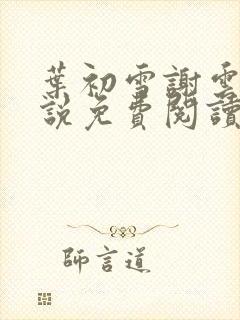 葉初雪謝雲
說免費閱讀
師言道